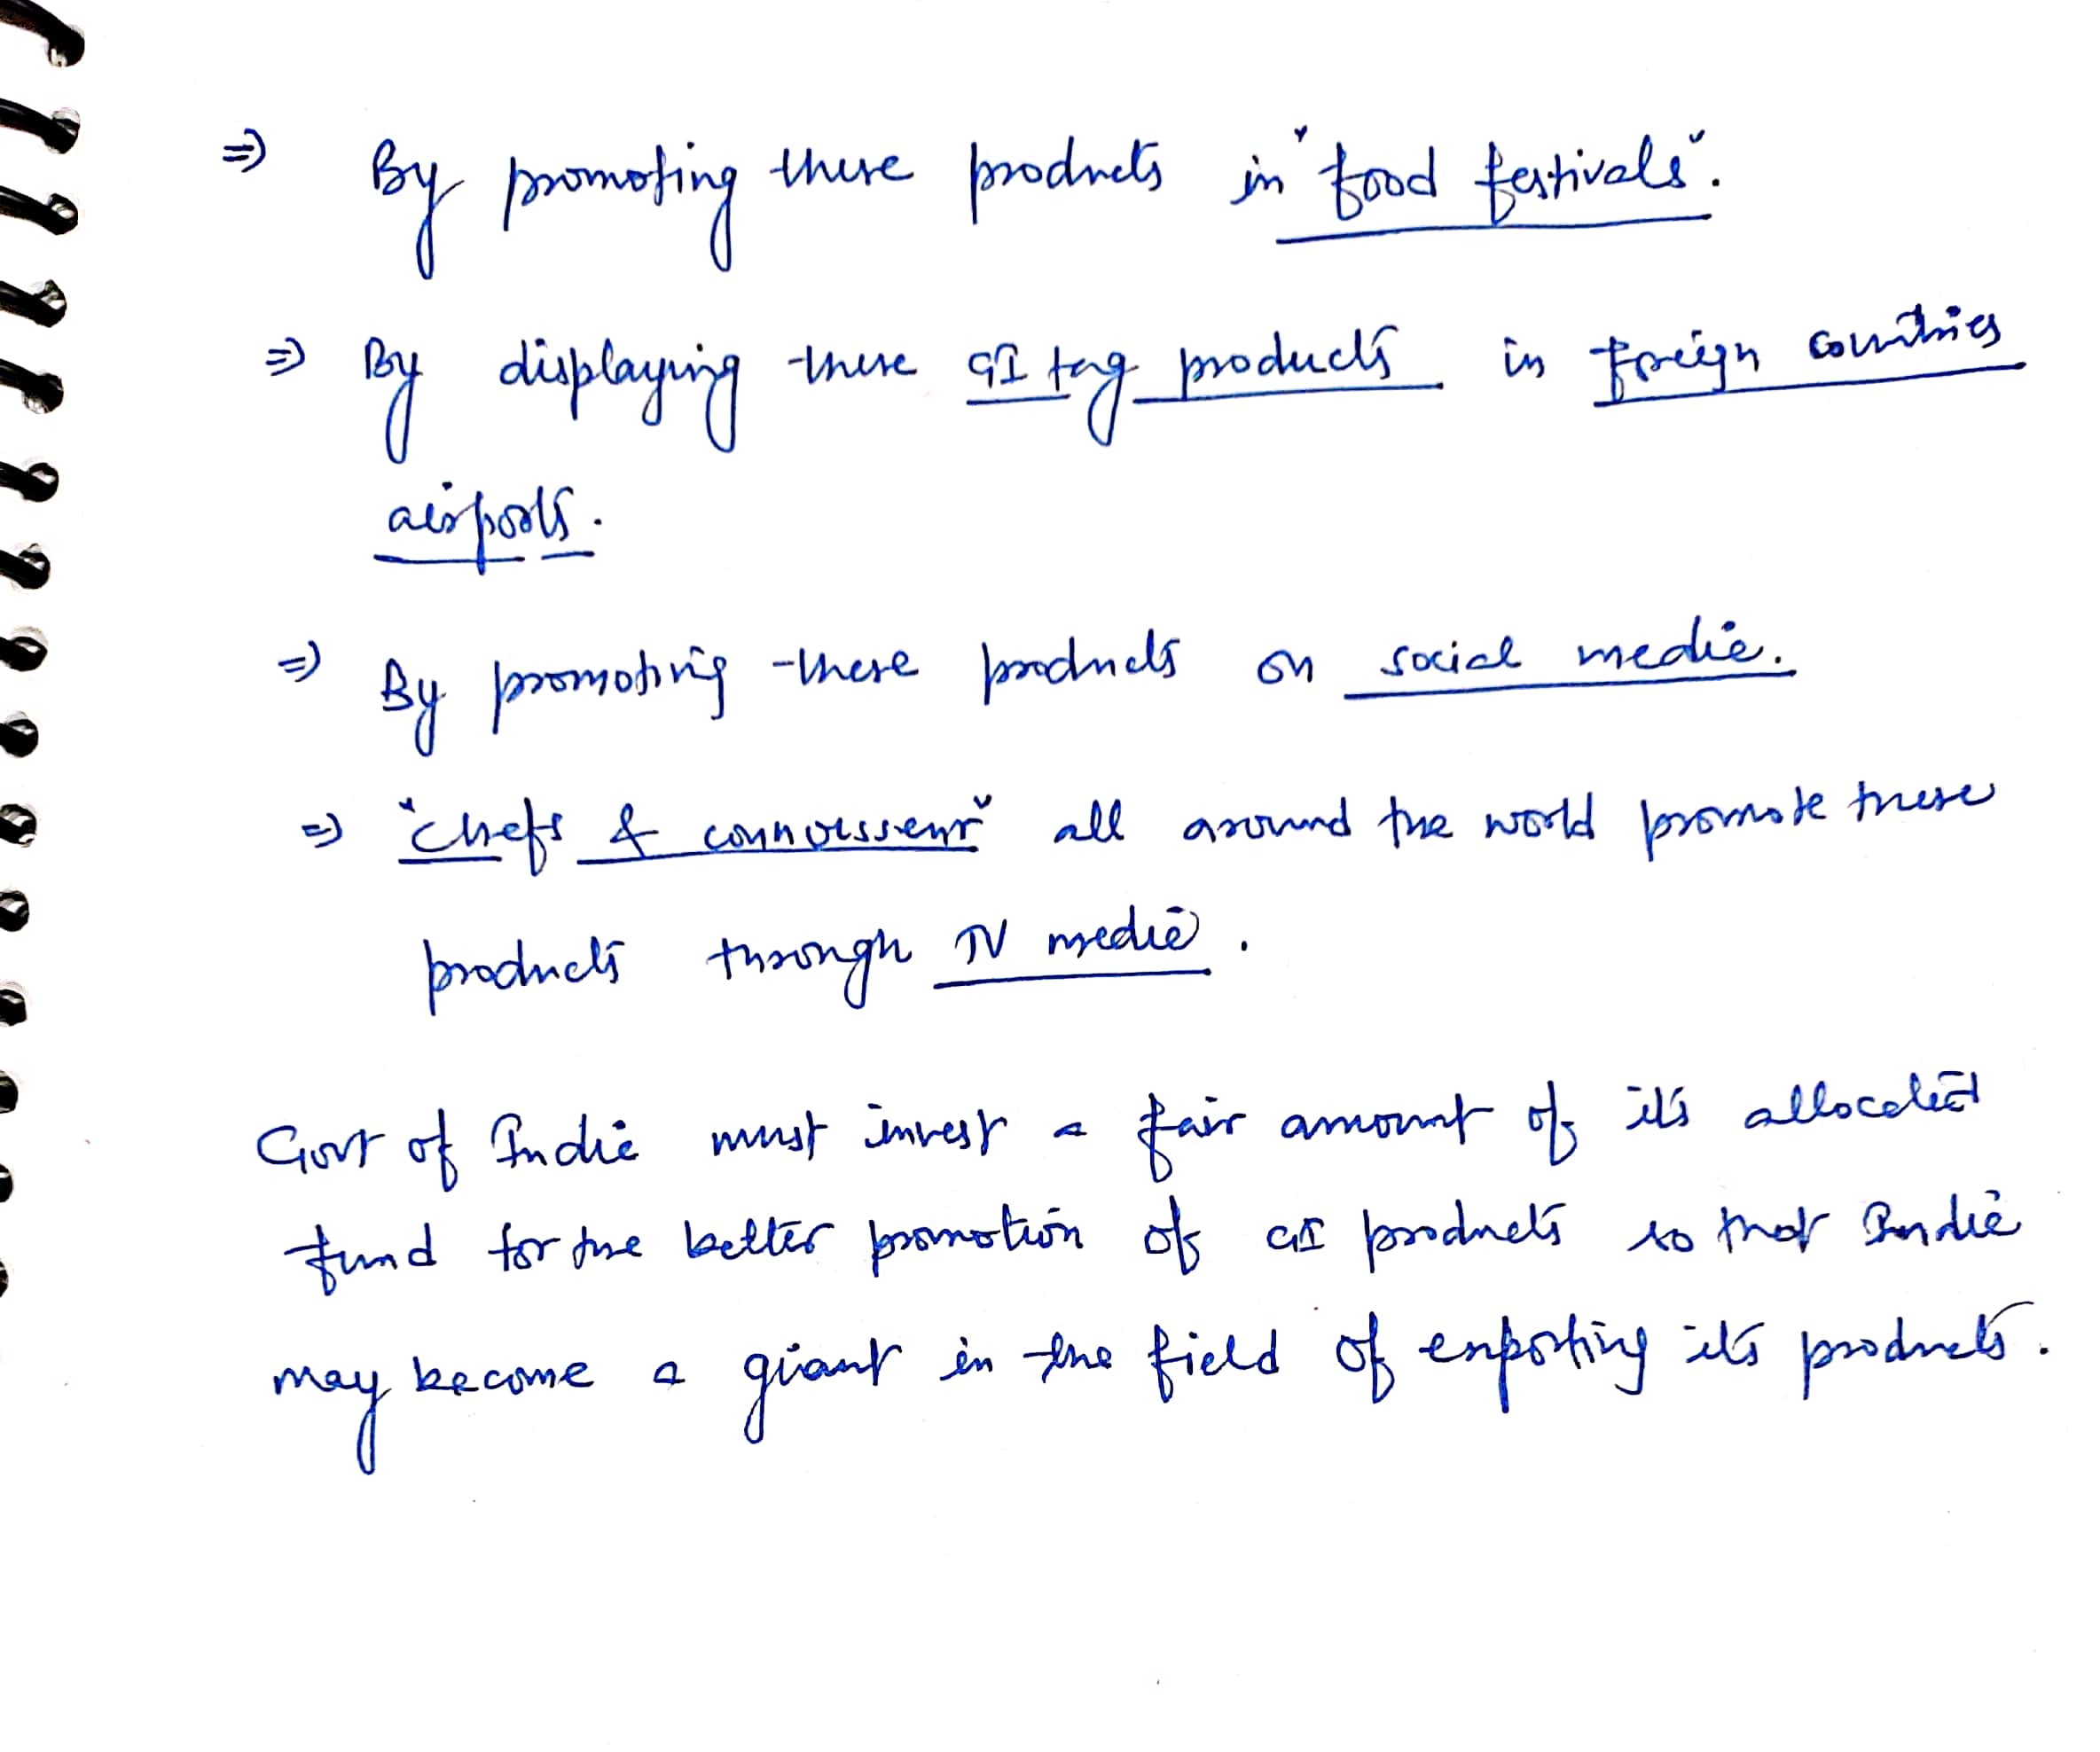 ⇒ By promoting these products in "food festivals".
⇒ By displaying these GI tag products in foreign countries
airports.
⇒ By promoting these products on social media.
⇒ "Chefs & connoisseur" all around the world promote these
products through TV media.
Govt of India must invest a fair amount of it's allocated
fund for the better promotion of GI products so that India
may become a giant in the field of exporting it's products.